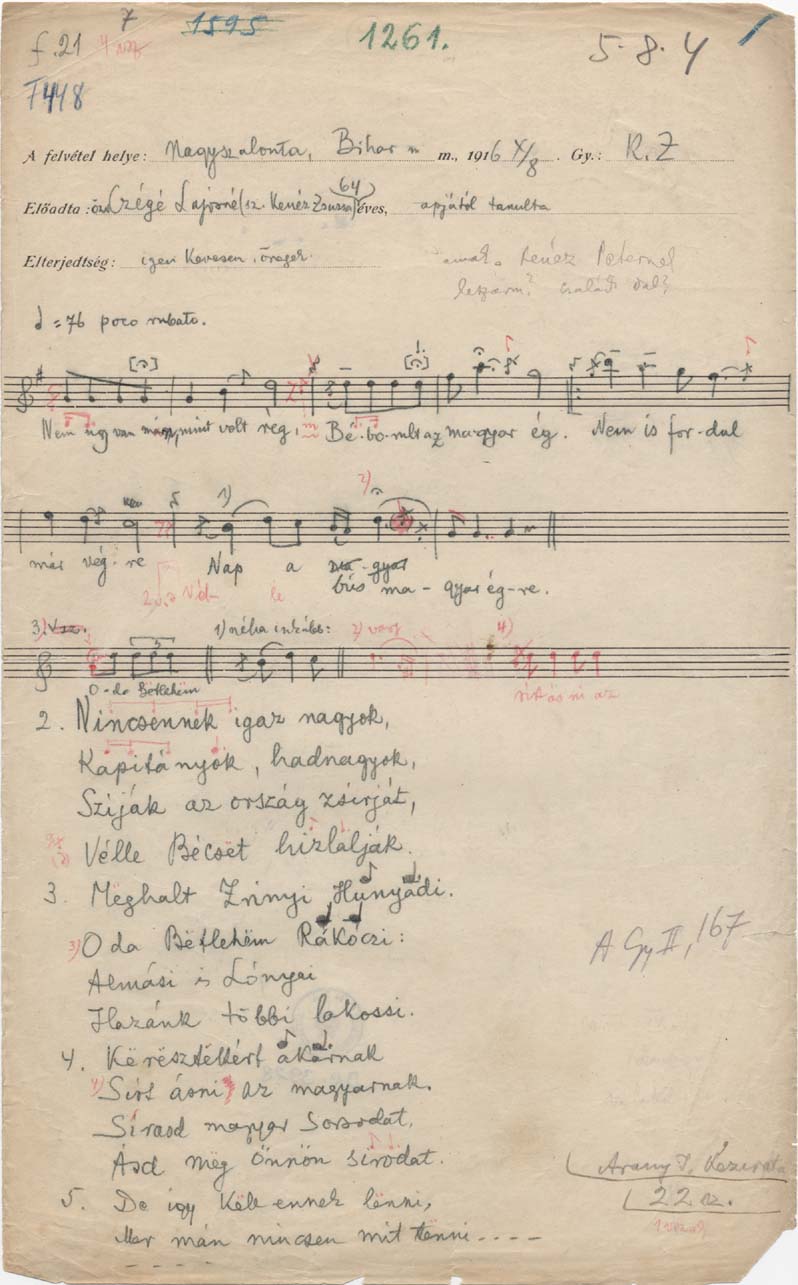 7
1595
1261.
5.8.4
f.21
F448
A felvétel helye: Nagyszalonta, Bihar m m., 1916 X/8. Gy.: K. Z
64
Előadta: özv Czégé Lajosné (sz. Kenéz Zsuzsa) éves, apjától tanulta
Elterjedtség: igen kevesen, öregek
Kenéz Péternek
leszárm? családi dal?
= 76 poco rubato.
Nem úgy van mán, mint volt rég, Bé-bo-rult az ma-gyar ég. Nem is for-dul
1) 2)
már vég-re Nap a
bús ma-gyar ég-re.
3. V sz. 1) néha inkább: 2) vagy 4)
O-da Bëtlehëm
sírt ásni az
2. Nincsennek igaz nagyok,
Kapitányok, hadnagyok,
Szijják az ország zsírját,
Vélle Bécsët hizlalják.
3. Mëghalt Zrínyi, Hunyadi.
3) Oda Bëtlehëm Rákóczi:
Almási is Lónyai
Hazánk többi lakossi.
4. Kërësztëkért akarnak
4) Sírt ásni az magyarnak.
Sirasd magyar sorsodat,
Ásd mëg önnön sírodat.
5. De így këll ennek lënni,
Mer mán nincsen mit tënni - - - -
- - - - -
A Gy II, 167
Arany J. Kézirata
22 sz.